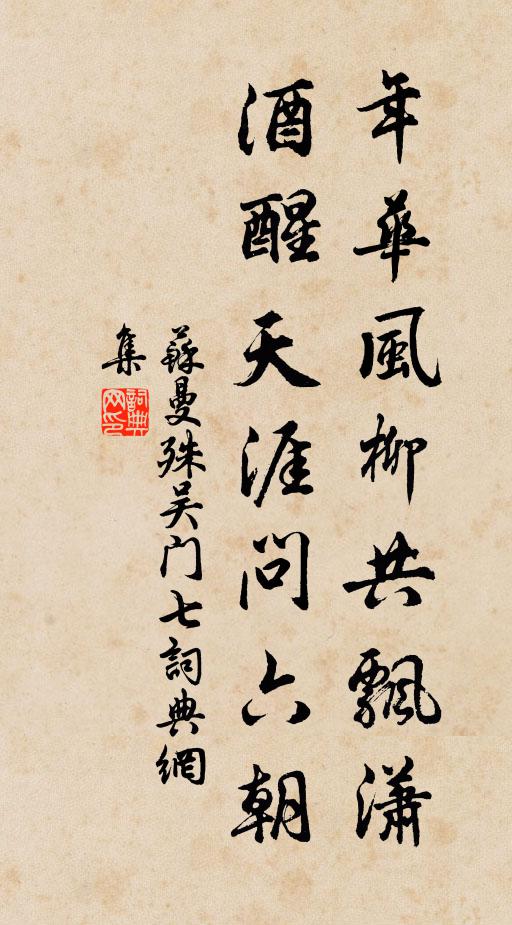 年華風柳共飄瀟
酒醒天涯問六朝
蘇曼殊吴门七詞典網
集
詞典网印